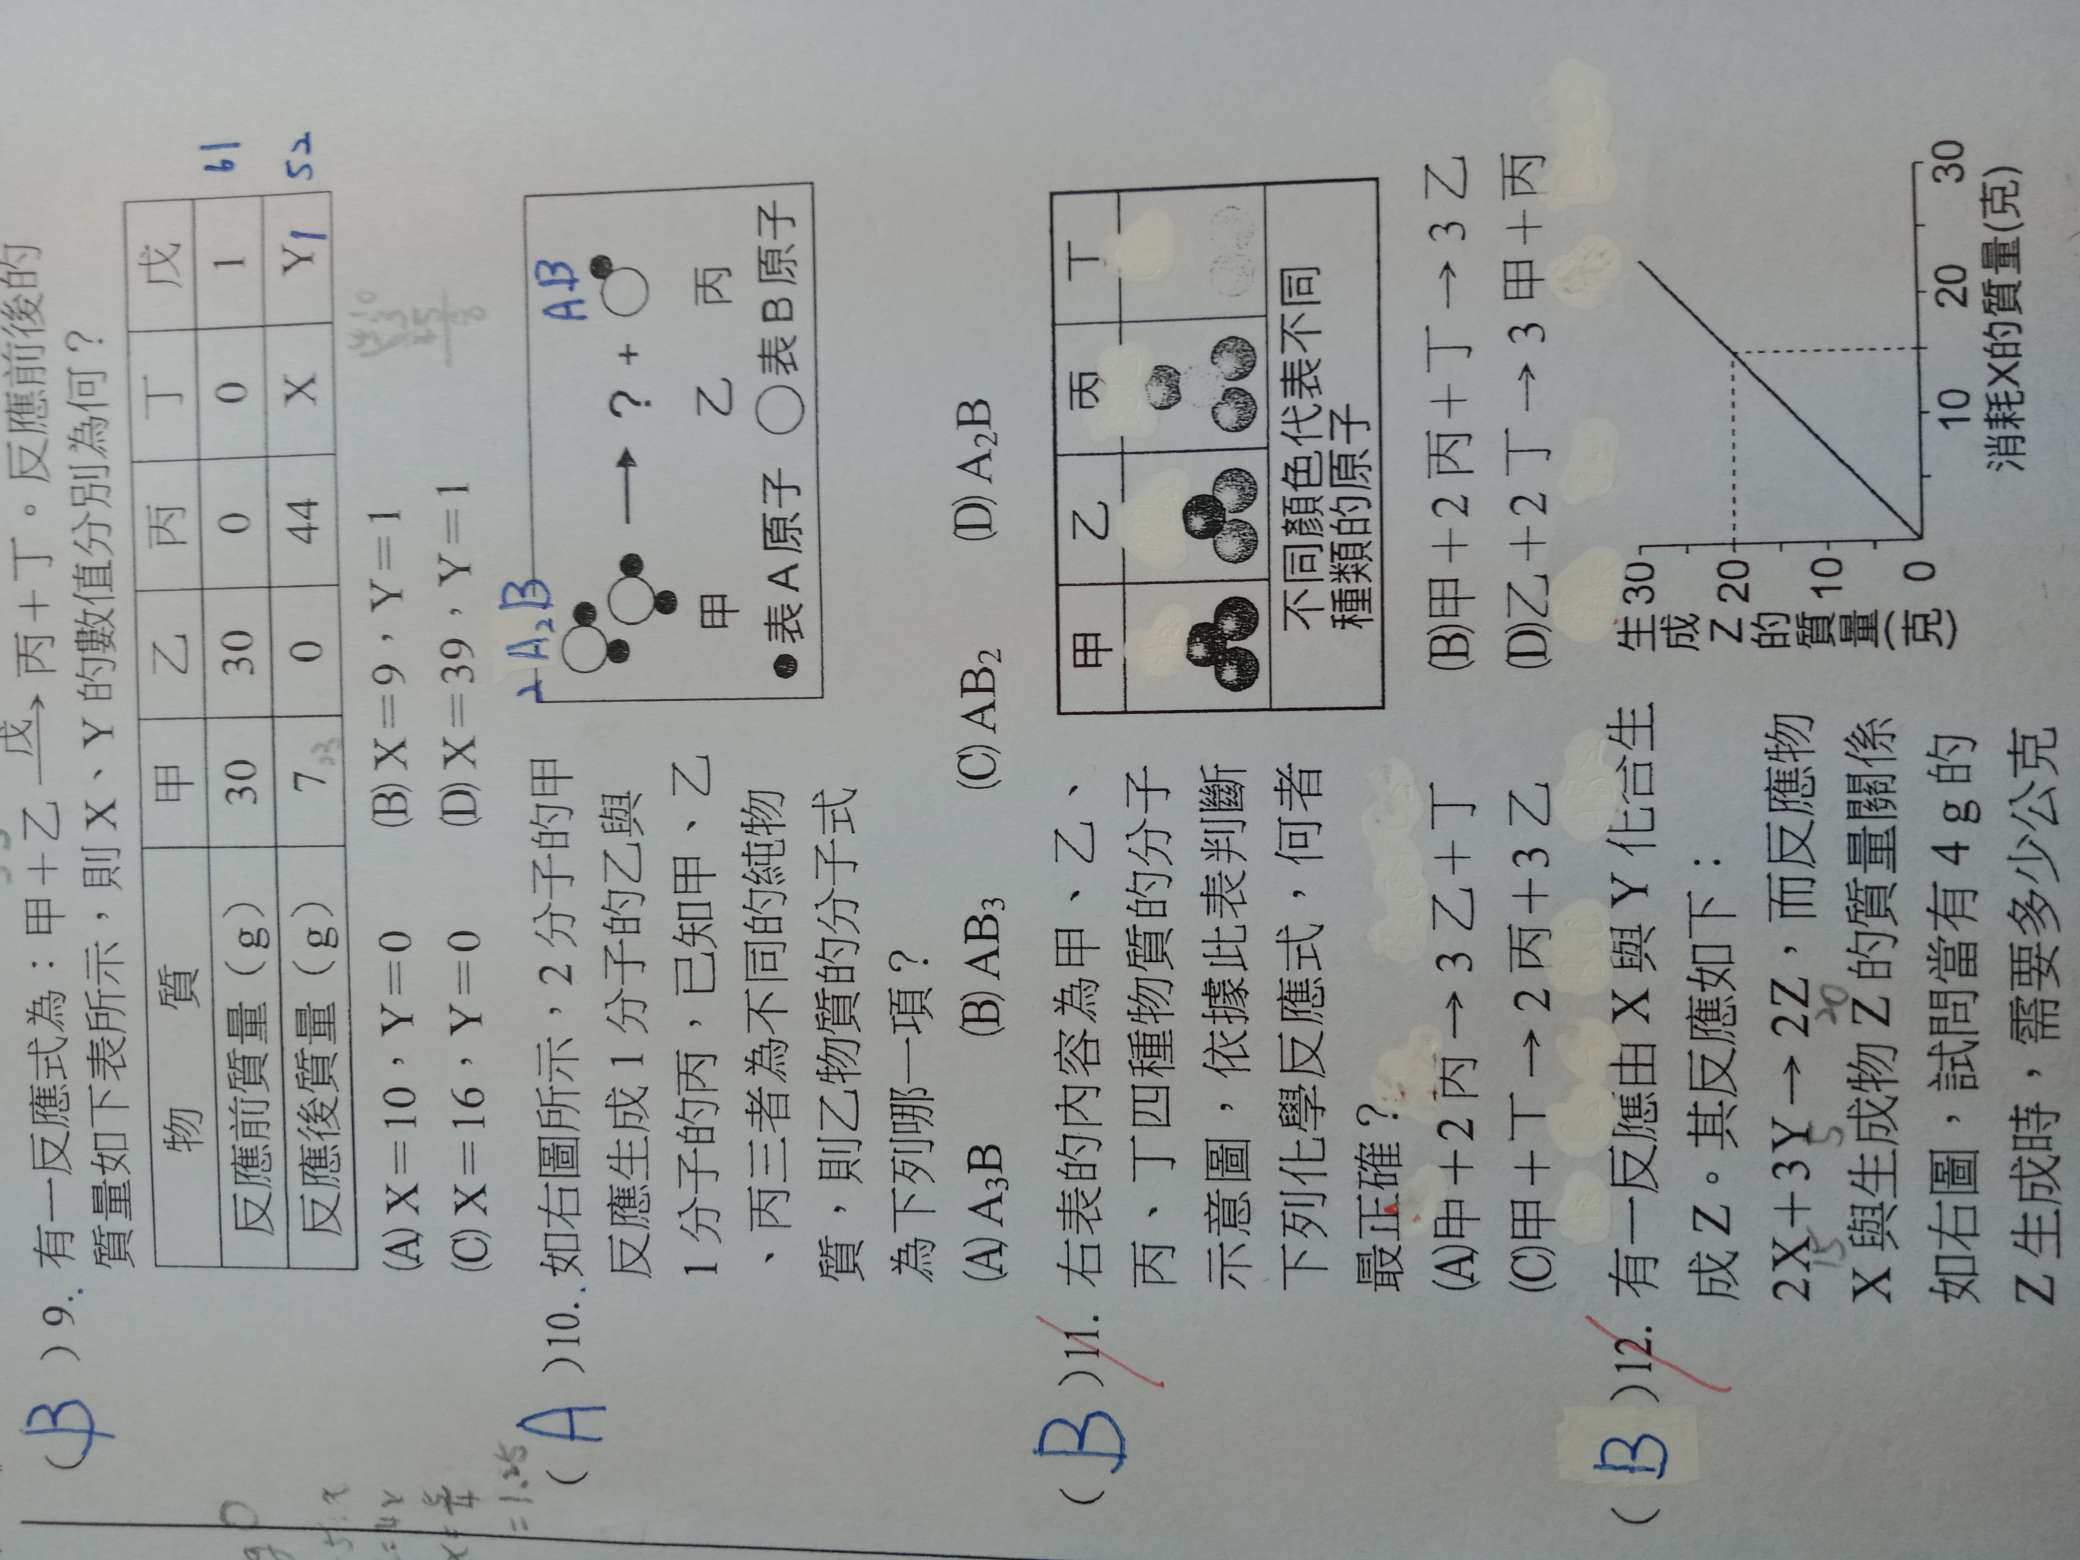 (B)9. 有一反應式為：甲＋乙 戊→ 丙＋丁。反應前後的
質量如下表所示，則 X、Y 的數值分別為何？
物 質 甲 乙 丙 丁 戊
反應前質量（g） 30 30 0 0 1 61
反應後質量（g） 7 0 44 X Y 1 52
(A) X＝10，Y＝0 (B) X＝9，Y＝1
(C) X＝16，Y＝0 (D) X＝39，Y＝1
(A)10. 如右圖所示，2 分子的甲
反應生成 1 分子的乙與
1 分子的丙，已知甲、乙
、丙三者為不同的純物
質，則乙物質的分子式
為下列哪一項？
2A₂B AB
→ ? ＋
甲 乙 丙
●表 A 原子 ○表 B 原子
(A) A₃B (B) AB₃ (C) AB₂ (D) A₂B
(B)11. 右表的內容為甲、乙、
丙、丁四種物質的分子
示意圖，依據此表判斷
下列化學反應式，何者
最正確？
甲 乙 丙 丁
不同顏色代表不同
種類的原子
(A)甲＋2 丙→3 乙＋丁 (B)甲＋2 丙＋丁→3 乙
(C)甲＋丁→2 丙＋3 乙 (D)乙＋2 丁→3 甲＋丙
(B)12. 有一反應由 X 與 Y 化合生
成 Z。其反應如下：
2X＋3Y→2Z，而反應物
15 5 20
X 與生成物 Z 的質量關係
如右圖，試問當有 4 g 的
Z 生成時，需要多少公克
生成Z的質量(克)
30
20
10
0
10 20 30
消耗X的質量(克)
=1.25